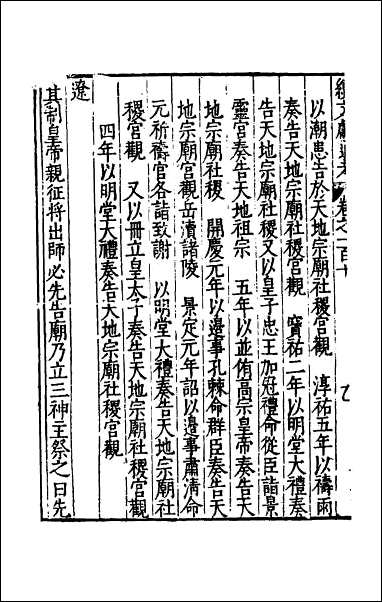 續文獻通考　卷之一百十
以潮患告於天地宗廟社稷宮觀　淳祐五年以禱雨
奏告天地宗廟社稷宮觀　寶祐二年以明堂大禮奏
告天地宗廟社稷又以皇子忠王加冠禮命從臣詣景
靈宮奏告天地祖宗　五年以並侑高宗皇帝奏告天
地宗廟社稷　開慶元年以邊事孔棘命群臣奏告天
地宗廟宮觀岳瀆諸陵　景定元年詔以邊事肅清命
元祈禱官各詣致謝　以明堂大禮奏告天地宗廟社
稷宮觀　又以冊立皇太子奏告天地宗廟社稷宮觀
四年以明堂大禮奏告天地宗廟社稷宮觀
遼
其制皇帝親征將出師必先告廟乃立三神主祭之曰先